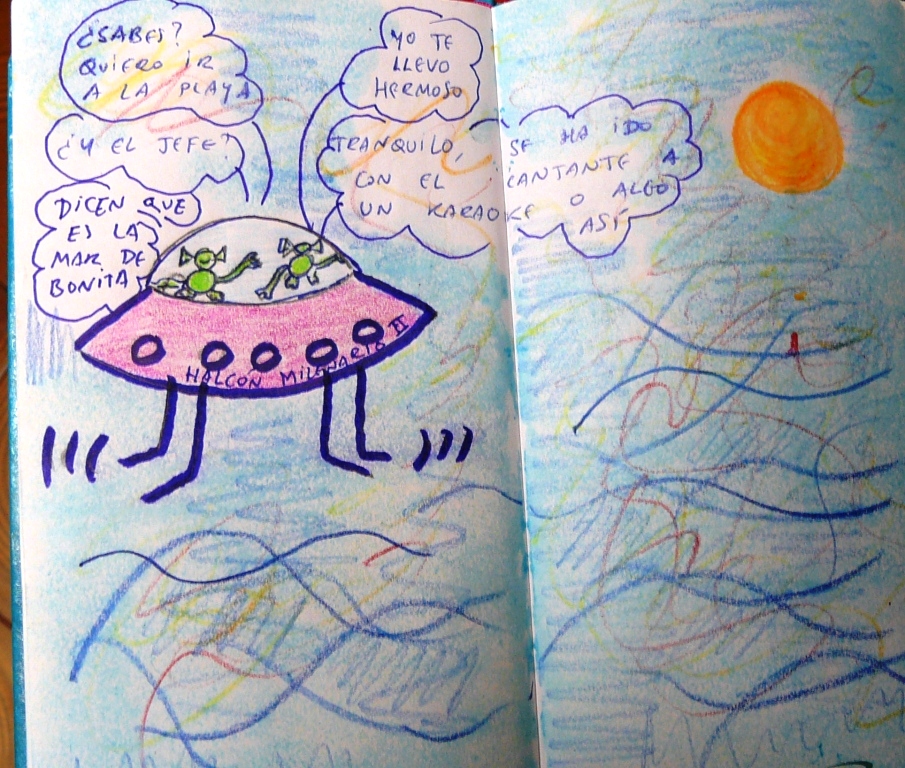 ¿SABES?
QUIERO iR
A LA PLAYA
YO TE
LLEVO
HERMOSO
¿Y EL JEFE?
TRANQUILO, SE HA iDO
CON EL CANTANTE A
UN KARAOKE O ALGO
ASÍ
DICEN QUE
ES LA
MAR DE
BONITA
HALCON MILENARIO II